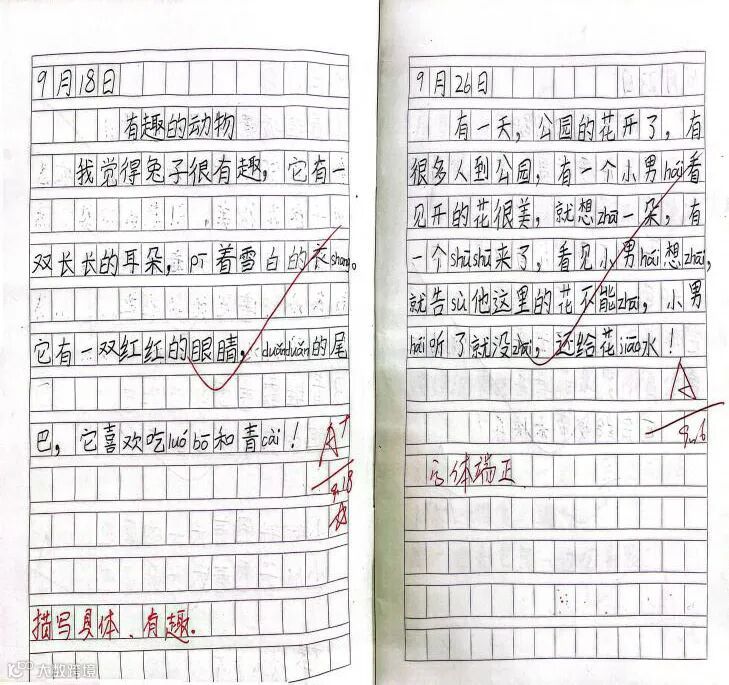 9月18日
有趣的动物
我觉得兔子很有趣，它有一
双长长的耳朵，pī着雪白的衣shang。
它有一双红红的眼睛，duǎnduǎn的尾
巴，它喜欢吃luó bō和青cài！
A+
9.18
描写具体、有趣.
9月26日
有一天，公园的花开了，有
很多人到公园，有一个小男hái看
见开的花很美，就想zhāi一朵，有
一个shūshū来了，看见小男hái想zhāi，
就告sù他这里的花不能zhāi，小男
hái听了就没zhāi，还给花jiāo水！
A
字体端正
大数跨境